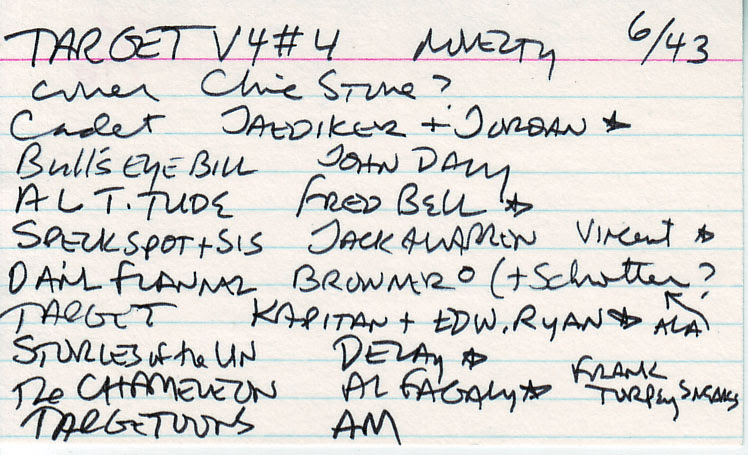 TARGET V4#4 NOVELTY 6/43
cover Chic Stone?
Cadet JAEDIKER + JORDAN ★
Bull's EYE BILL JOHN DALY
AL T. TUDE FRED BELL ★
SPECK SPOT + SIS JACK A WARREN Vincent ★
DAN'L FLANNEL BROWNER ° (+ Schrotter?
TARGET KAPITAN + EDW. RYAN ★ ALA
STORIES of the UN DELAY ★
The CHAMELEON AL FAGALY ★ FRANK TURPEY SNEAKS
TARGETOONS AM